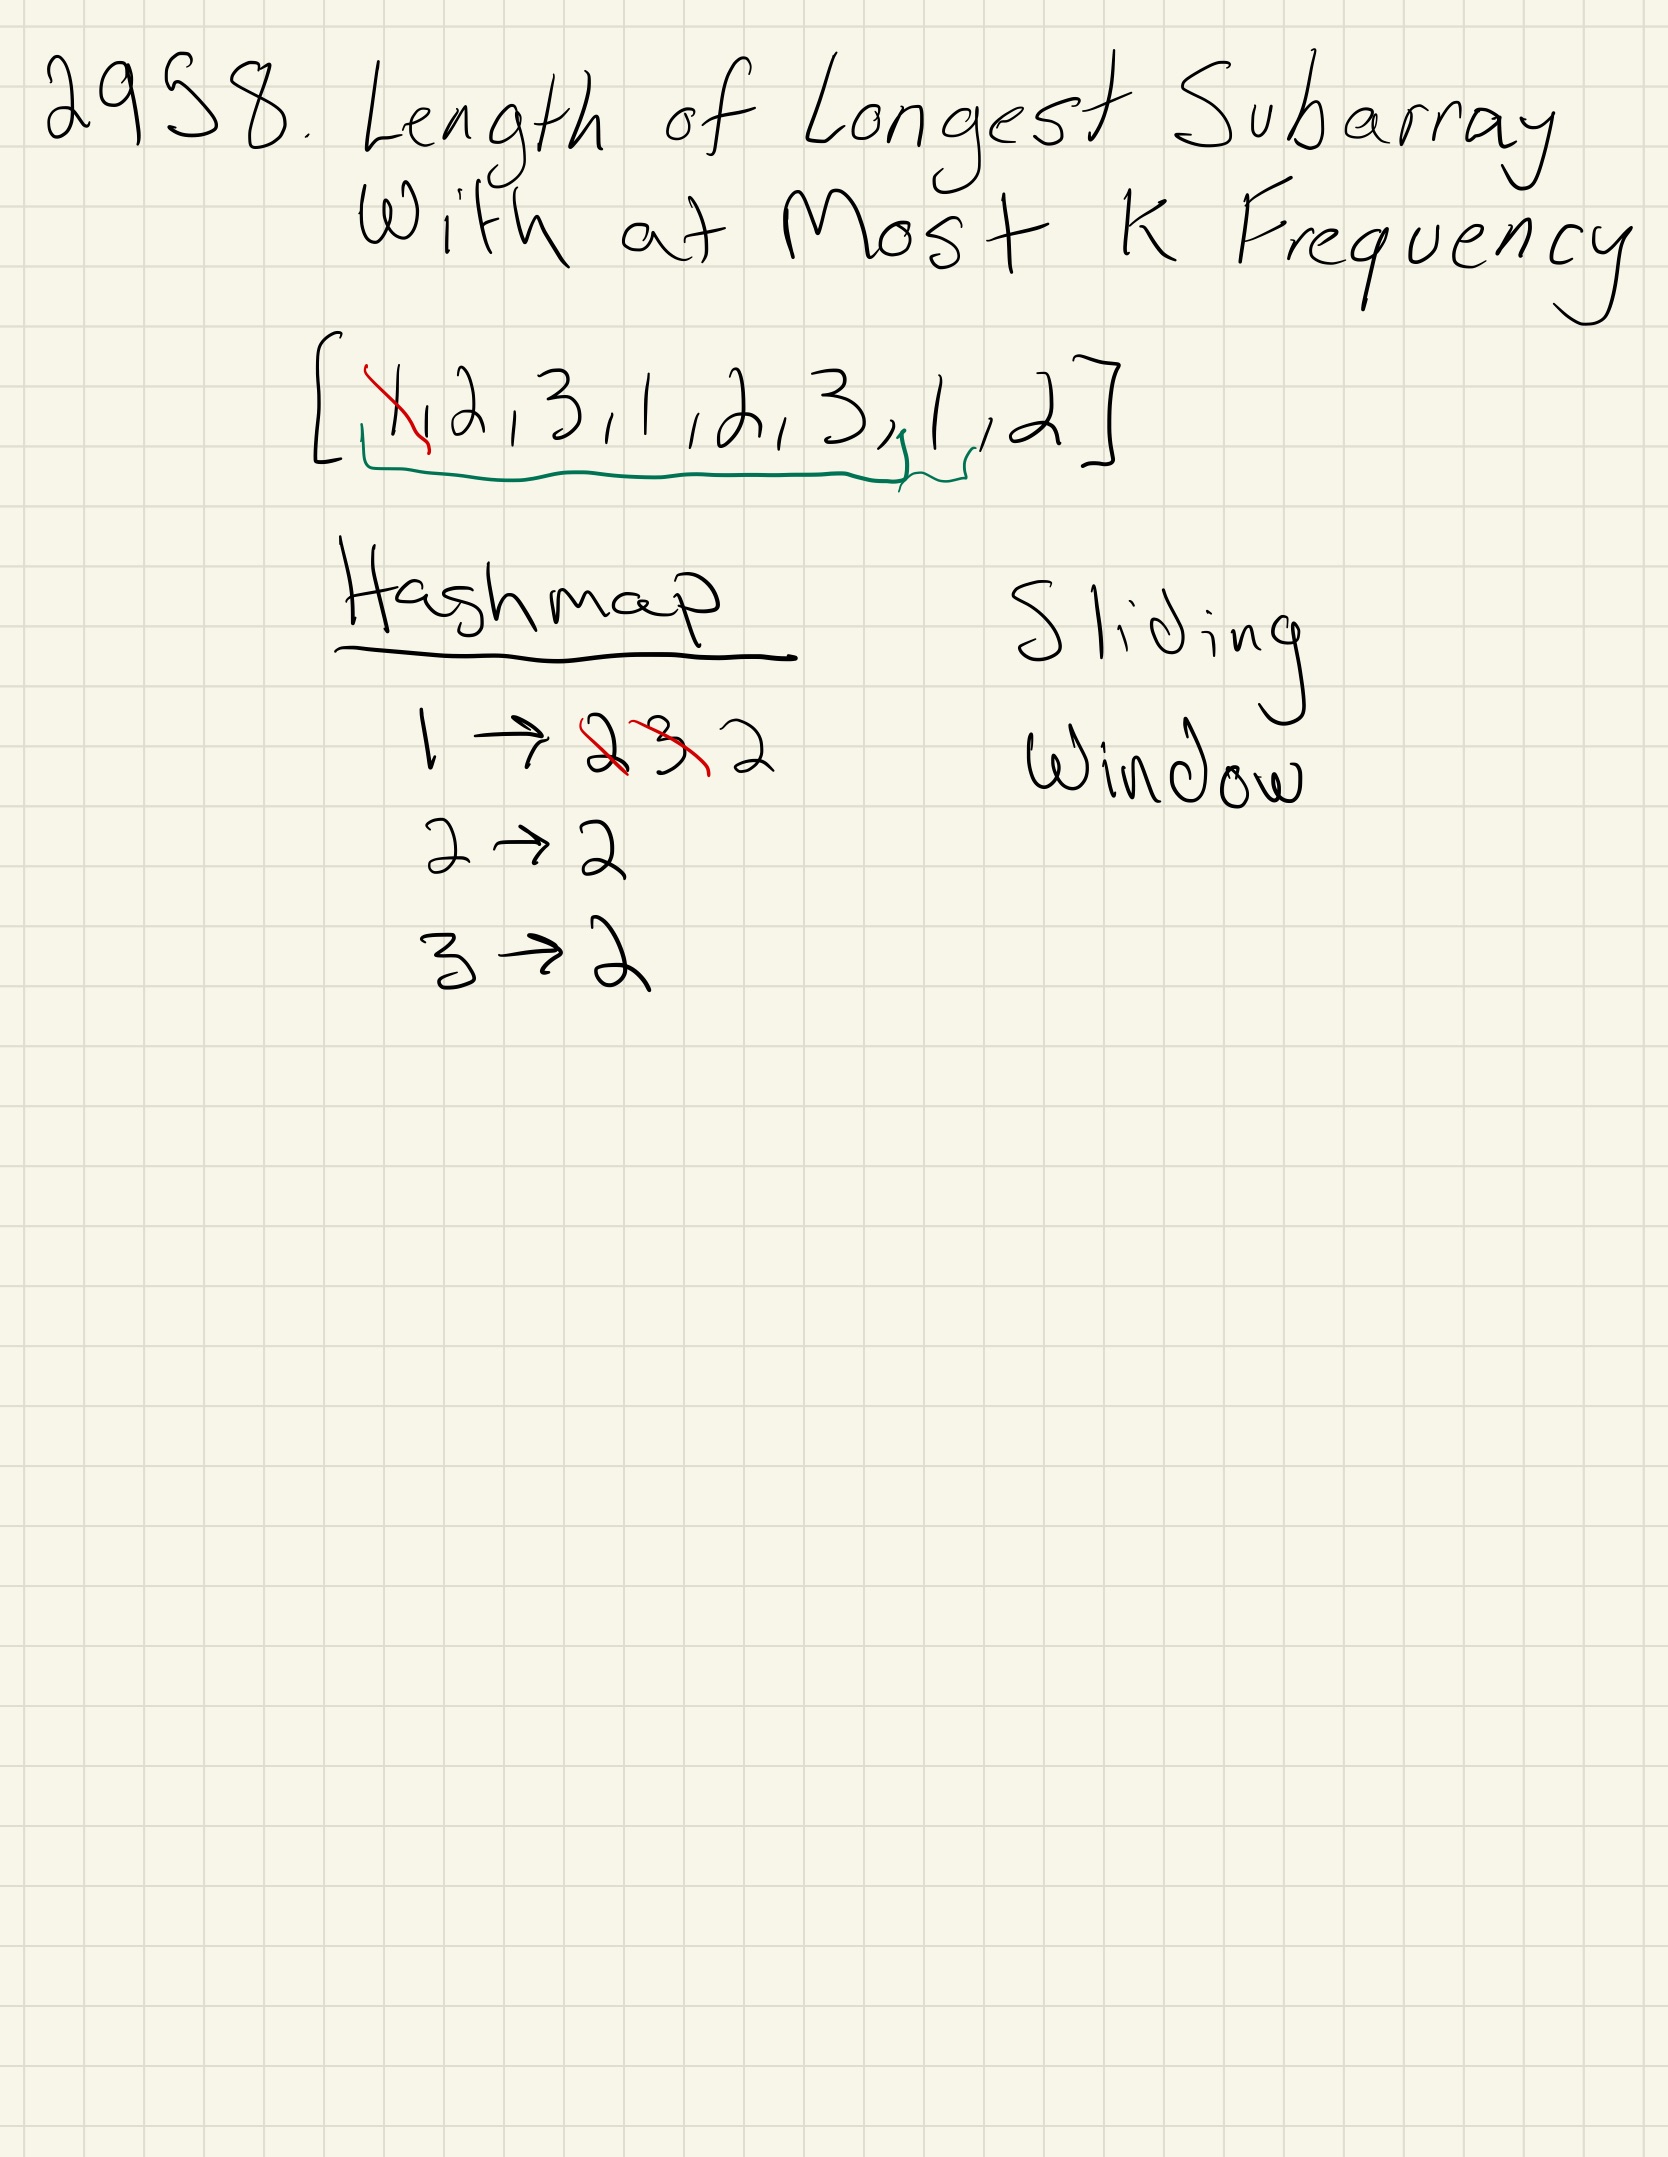 2958. Length of Longest Subarray
With at Most K Frequency
[1,2,3,1,2,3,1,2]
Hashmap
1 → 2 3 2
2 → 2
3 → 2
Sliding
Window